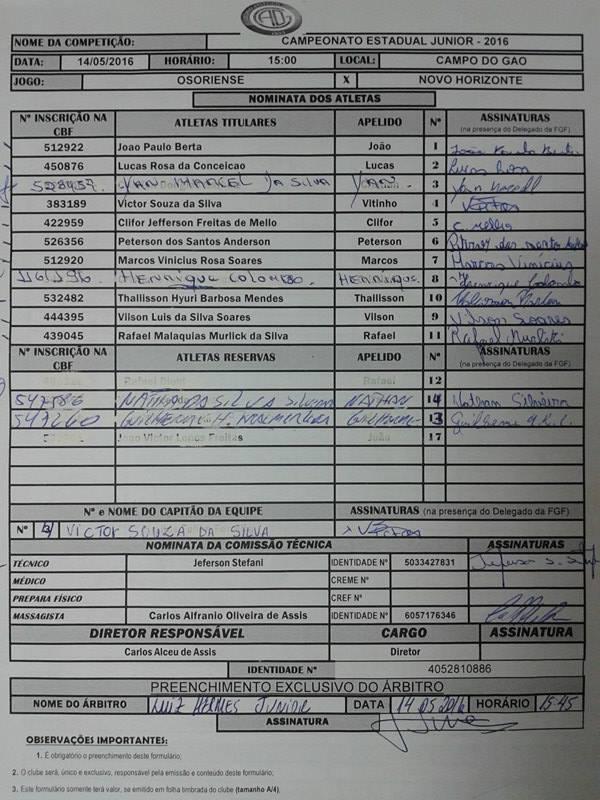 NOME DA COMPETIÇÃO: CAMPEONATO ESTADUAL JUNIOR - 2016
DATA: 14/05/2016 HORÁRIO: 15:00 LOCAL: CAMPO DO GAO
JOGO: OSORIENSE X NOVO HORIZONTE
NOMINATA DOS ATLETAS
Nº INSCRIÇÃO NA CBF ATLETAS TITULARES APELIDO Nº ASSINATURAS (na presença do Delegado da FGF)
512922 Joao Paulo Berta João 1
450876 Lucas Rosa da Conceicao Lucas 2 Lucas Rosa
YAN MARCEL DA SILVA YAN. 3 Yan Marcel
383189 Victor Souza da Silva Vitinho 4 Victor
422959 Clifor Jefferson Freitas de Mello Clifor 5 C. Mello
526356 Peterson dos Santos Anderson Peterson 6 Peterson dos Santos
512920 Marcos Vinicius Rosa Soares Marcos 7 Marcos Vinicius
116196 HENRIQUE COLOMBO HENRIQUE. 8 Henrique Colombo
532482 Thallisson Hyuri Barbosa Mendes Thallisson 10
444395 Vilson Luis da Silva Soares Vilson 9 Vilson Soares
439045 Rafael Malaquias Murlick da Silva Rafael 11 Rafael Murlick
Nº INSCRIÇÃO NA CBF ATLETAS RESERVAS APELIDO Nº ASSINATURAS (na presença do Delegado da FGF)
Rafael 12
NATHAN DA SILVA NATHAN 14 Nathan Silveira
547260 GUILHERME H. GUILHERME 13 Guilherme
Joao Victor Lopes Freitas João 17
Nº e NOME DO CAPITÃO DA EQUIPE ASSINATURAS (na presença do Delegado da FGF)
Nº VICTOR SOUZA DA SILVA x Victor
NOMINATA DA COMISSÃO TÉCNICA ASSINATURAS
TÉCNICO Jeferson Stefani IDENTIDADE Nº 5033427831
MÉDICO CREME Nº
PREPARA FÍSICO CREF Nº
MASSAGISTA Carlos Alfranio Oliveira de Assis IDENTIDADE Nº 6057176346
DIRETOR RESPONSÁVEL CARGO ASSINATURA
Carlos Alceu de Assis Diretor
IDENTIDADE Nº 4052810886
PREENCHIMENTO EXCLUSIVO DO ÁRBITRO
NOME DO ÁRBITRO LUIZ HERMES JUNIOR DATA 14 05 2016 HORÁRIO 15:45
ASSINATURA
OBSERVAÇÕES IMPORTANTES:
1. É obrigatório o preenchimento deste formulário;
2. O clube será, único e exclusivo, responsável pela emissão e conteúdo deste formulário;
3. Este formulário somente terá valor, se emitido em folha timbrada do clube (tamanho A/4);